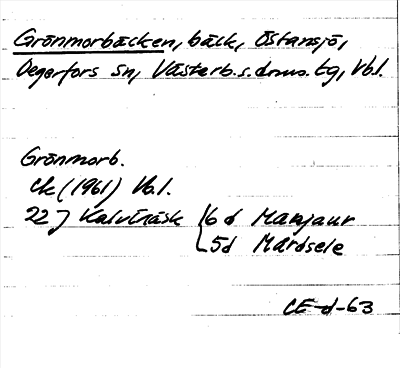 Grönmorbäcken, bäck, Östansjö,
Degerfors sn, Västerb.s.doms.tg, Vb.l.
Grönmorb.
ek (1961) Vb.l.
22 J Kalvträsk 6 d Manjaur
5d Mårdsele
CE-d-63